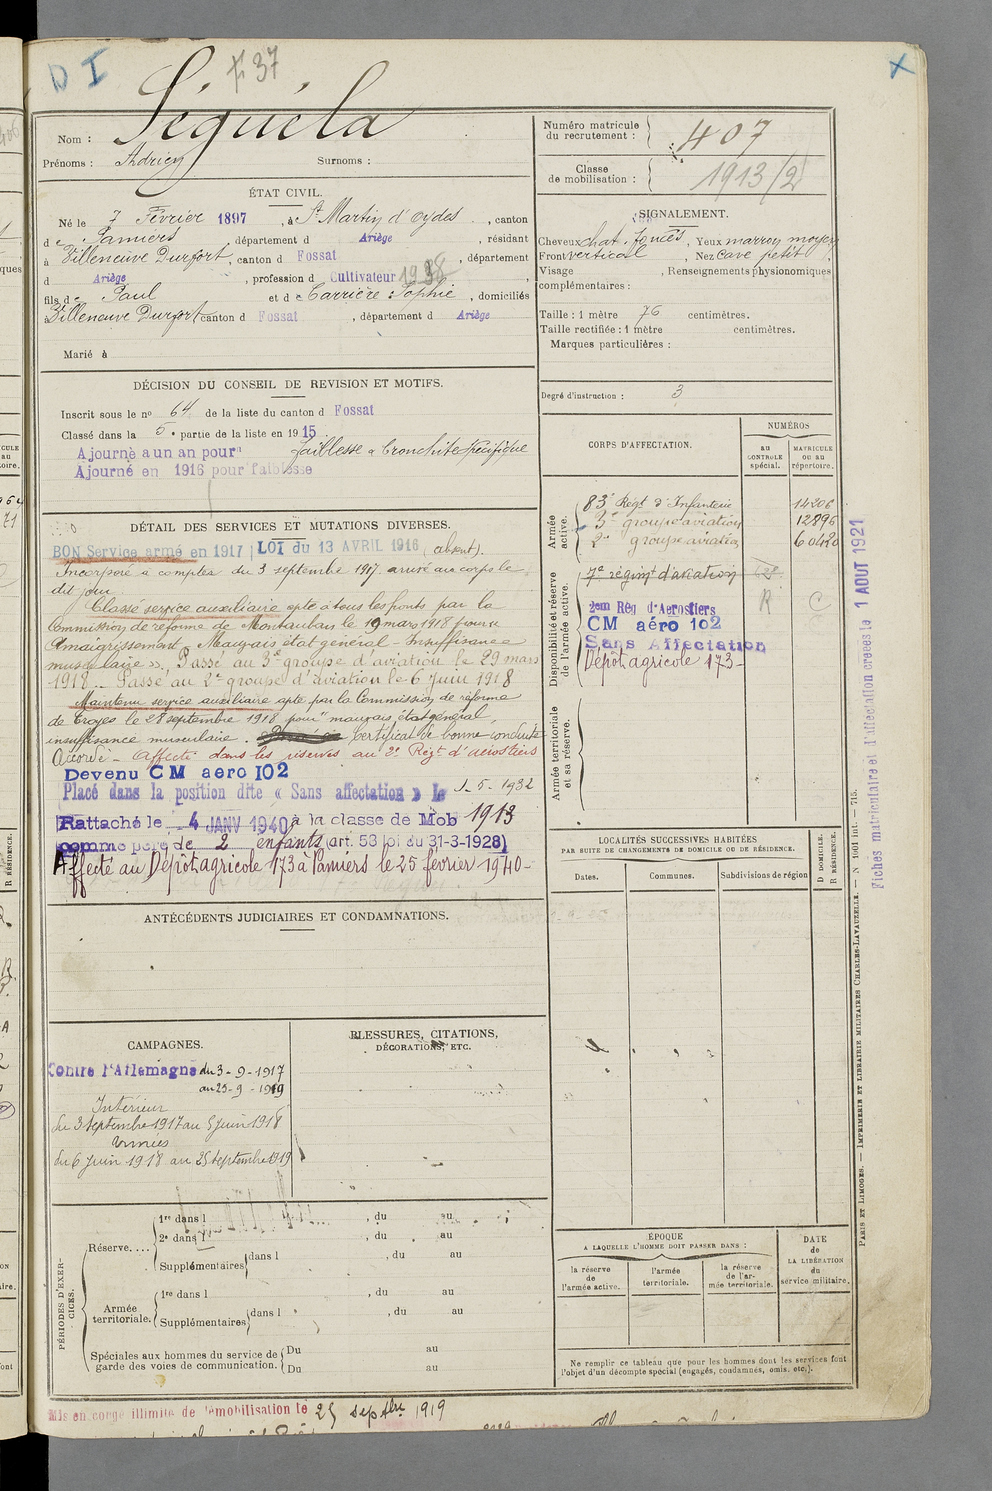 D I
37
Nom : Séguéla
Prénoms : Adrien Surnoms :
Numéro matricule du recrutement : 407
Classe de mobilisation : 1913/2
ÉTAT CIVIL.
Né le 7 Février 1897, à St Martin d'Oydes, canton
de Pamiers, département d Ariège, résidant
à Villeneuve Durfort, canton d Fossat, département
d Ariège, profession d Cultivateur
fils de Paul et de Carrière Sophie, domiciliés
à Villeneuve Durfort canton d Fossat, département d Ariège
Marié à
SIGNALEMENT.
Cheveux chat. foncés, Yeux marron moyen
Front vertical, Nez cave petit
Visage , Renseignements physionomiques
complémentaires :
Taille : 1 mètre 76 centimètres.
Taille rectifiée : 1 mètre centimètres.
Marques particulières :
Degré d'instruction : 3
DÉCISION DU CONSEIL DE REVISION ET MOTIFS.
Inscrit sous le no 64 de la liste du canton d Fossat
Classé dans la 5e partie de la liste en 1915
Ajourné a un an pour faiblesse & bronchite spécifique
Ajourné en 1916 pour faiblesse
DÉTAIL DES SERVICES ET MUTATIONS DIVERSES.
BON Service armé en 1917 LOI du 13 AVRIL 1916 (absent).
Incorporé à compter du 3 septembre 1917. arrivé au corps le
dit jour
Classé service auxiliaire apte à tous les fronts par la
Commission de réforme de Montauban le 19 mars 1918 pour «
Amaigrissement, Mauvais état général Insuffisance
musculaire ». Passé au 3e groupe d'aviation le 29 mars
1918. Passé au 2e groupe d'aviation le 6 Juin 1918
Maintenu service auxiliaire apte par la Commission de réforme
de Troyes le 28 septembre 1918 pour "mauvais état général,
insuffisance musculaire. Certificat de bonne conduite
Accordé - Affecté dans les réserves au 2e Régt d'aérostiers
Devenu CM aero 102
Placé dans la position dite « Sans affectation » le 1-5-1932
Rattaché le 4 JANV 1940 à la classe de Mob 1913
comme père de 2 enfants (art. 58 loi du 31-3-1928)
Affecté au Dépôt agricole 173 à Pamiers le 25 février 1940
CORPS D'AFFECTATION.
NUMÉROS
AU CONTROLE spécial.
MATRICULE OU AU répertoire.
Armée active.
83e Régt d'Infanterie 14206
3e groupe aviation 12896
2e groupe aviation 60420
Disponibilité et réserve de l'armée active.
7e régimt d'aviation
2em Rég d'Aerostiers R C
CM aéro 102
Sans Affectation
Dépôt agricole 173
Armée territoriale et sa réserve.
Fiches matriculaire et d'affectation créées le 1 AOUT 1921
LOCALITÉS SUCCESSIVES HABITÉES
PAR SUITE DE CHANGEMENTS DE DOMICILE OU DE RÉSIDENCE.
Dates. Communes. Subdivisions de région D DOMICILE. R RÉSIDENCE.
ANTÉCÉDENTS JUDICIAIRES ET CONDAMNATIONS.
CAMPAGNES.
Contre l'Allemagne du 3-9-1917
au 25-9-1919
Intérieur
du 3 Septembre 1917 au 5 juin 1918
Armées
du 6 Juin 1918 au 25 Septembre 1919
BLESSURES, CITATIONS,
DÉCORATIONS, ETC.
PÉRIODES D'EXERCICES.
Réserve....
1re dans l , du au
2e dans l , du au
Supplémentaires dans l , du au
Armée territoriale.
1re dans l , du au
Supplémentaires dans l , du au
Spéciales aux hommes du service de garde des voies de communication.
Du au
Du au
ÉPOQUE
A LAQUELLE L'HOMME DOIT PASSER DANS :
la réserve de l'armée active.
l'armée territoriale.
la réserve de l'armée territoriale.
DATE de LA LIBÉRATION du service militaire.
Ne remplir ce tableau que pour les hommes dont les services font
l'objet d'un décompte spécial (engagés, condamnés, omis, etc.).
PARIS ET LIMOGES. — IMPRIMERIE ET LIBRAIRIE MILITAIRES CHARLES-LAVAUZELLE. — N 1001 int. — 715.
Mis en congé illimité de démobilisation le 25 septbre 1919